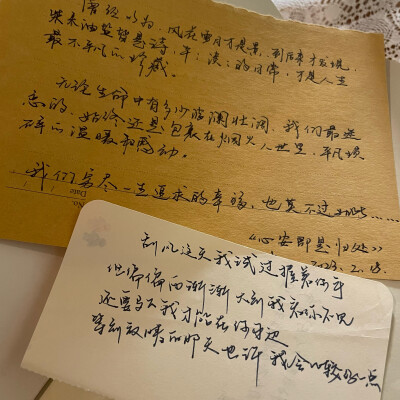 曾经以为,风花雪月才是景,到后来才发现,
柴米油盐皆是诗,平平淡淡的日常,才是人生
最不平凡的珍藏。
无论生命中有多少波澜壮阔,我们最迷
恋的,始终还是包裹在烟火人世里,平凡琐
碎的温暖和感动。
我们穷尽一生追求的幸福,也莫不过如此……
No.
Date
《心安即是归处》
2023. 2. 18.
刮风这天我试过握着你手
但偏偏雨渐渐大到我看你不见
还要多久我才能在你身边
等到放晴的那天也许我会比较好一点